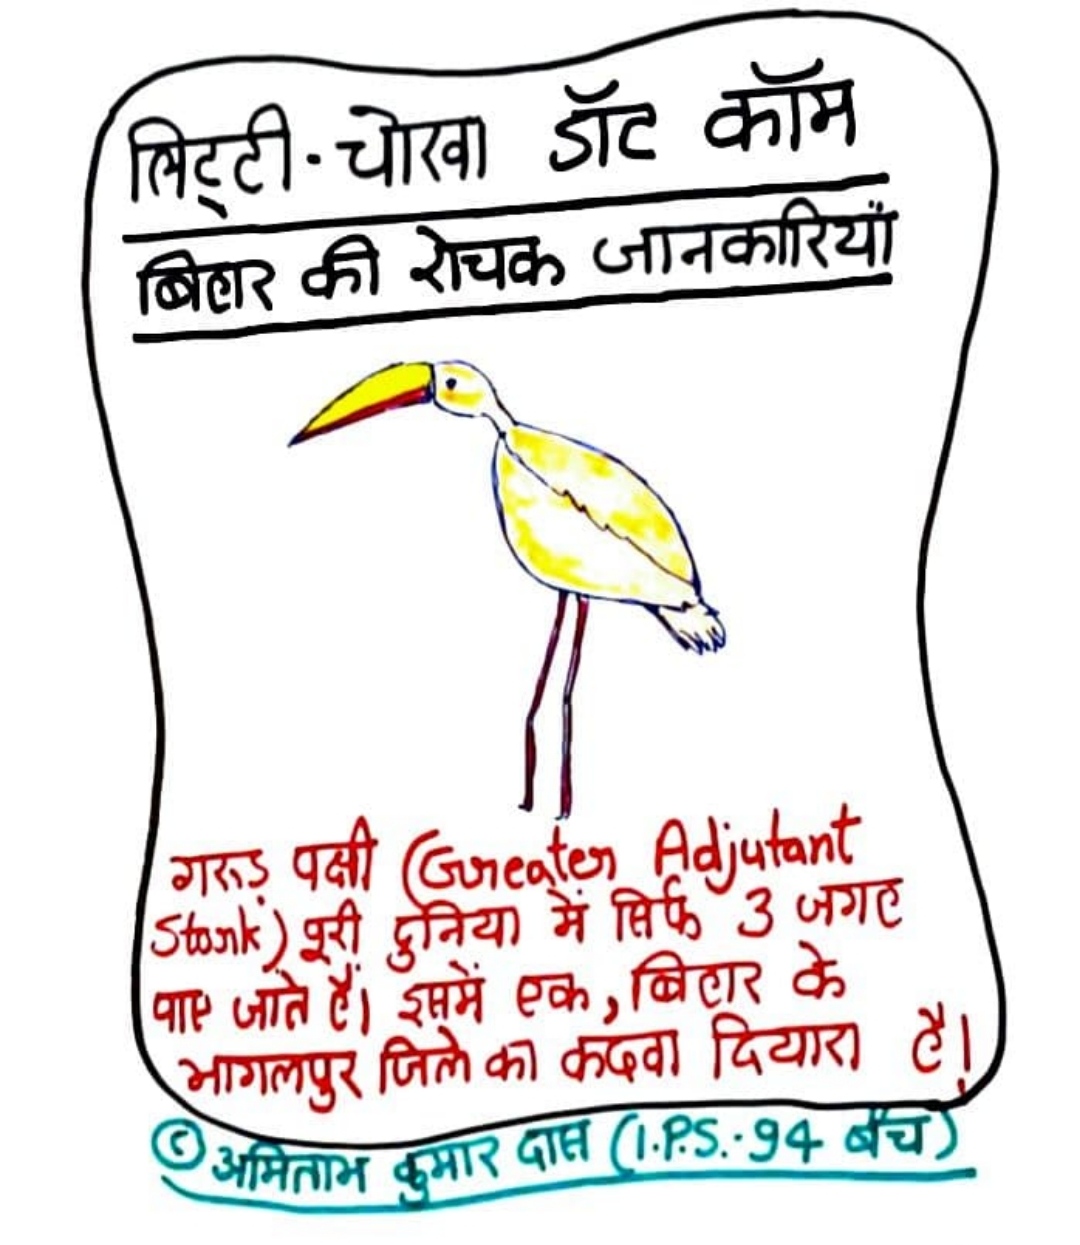 लिट्टी-चोखा डॉट कॉम
बिहार की रोचक जानकारियाँ
गरूड़ पक्षी (Greater Adjutant
Stork) पूरी दुनिया में सिर्फ 3 जगह
पाए जाते हैं। इसमें एक, बिहार के
भागलपुर जिले का कदवा दियारा है!
© अमिताभ कुमार दास (I.P.S.-94 बैच)